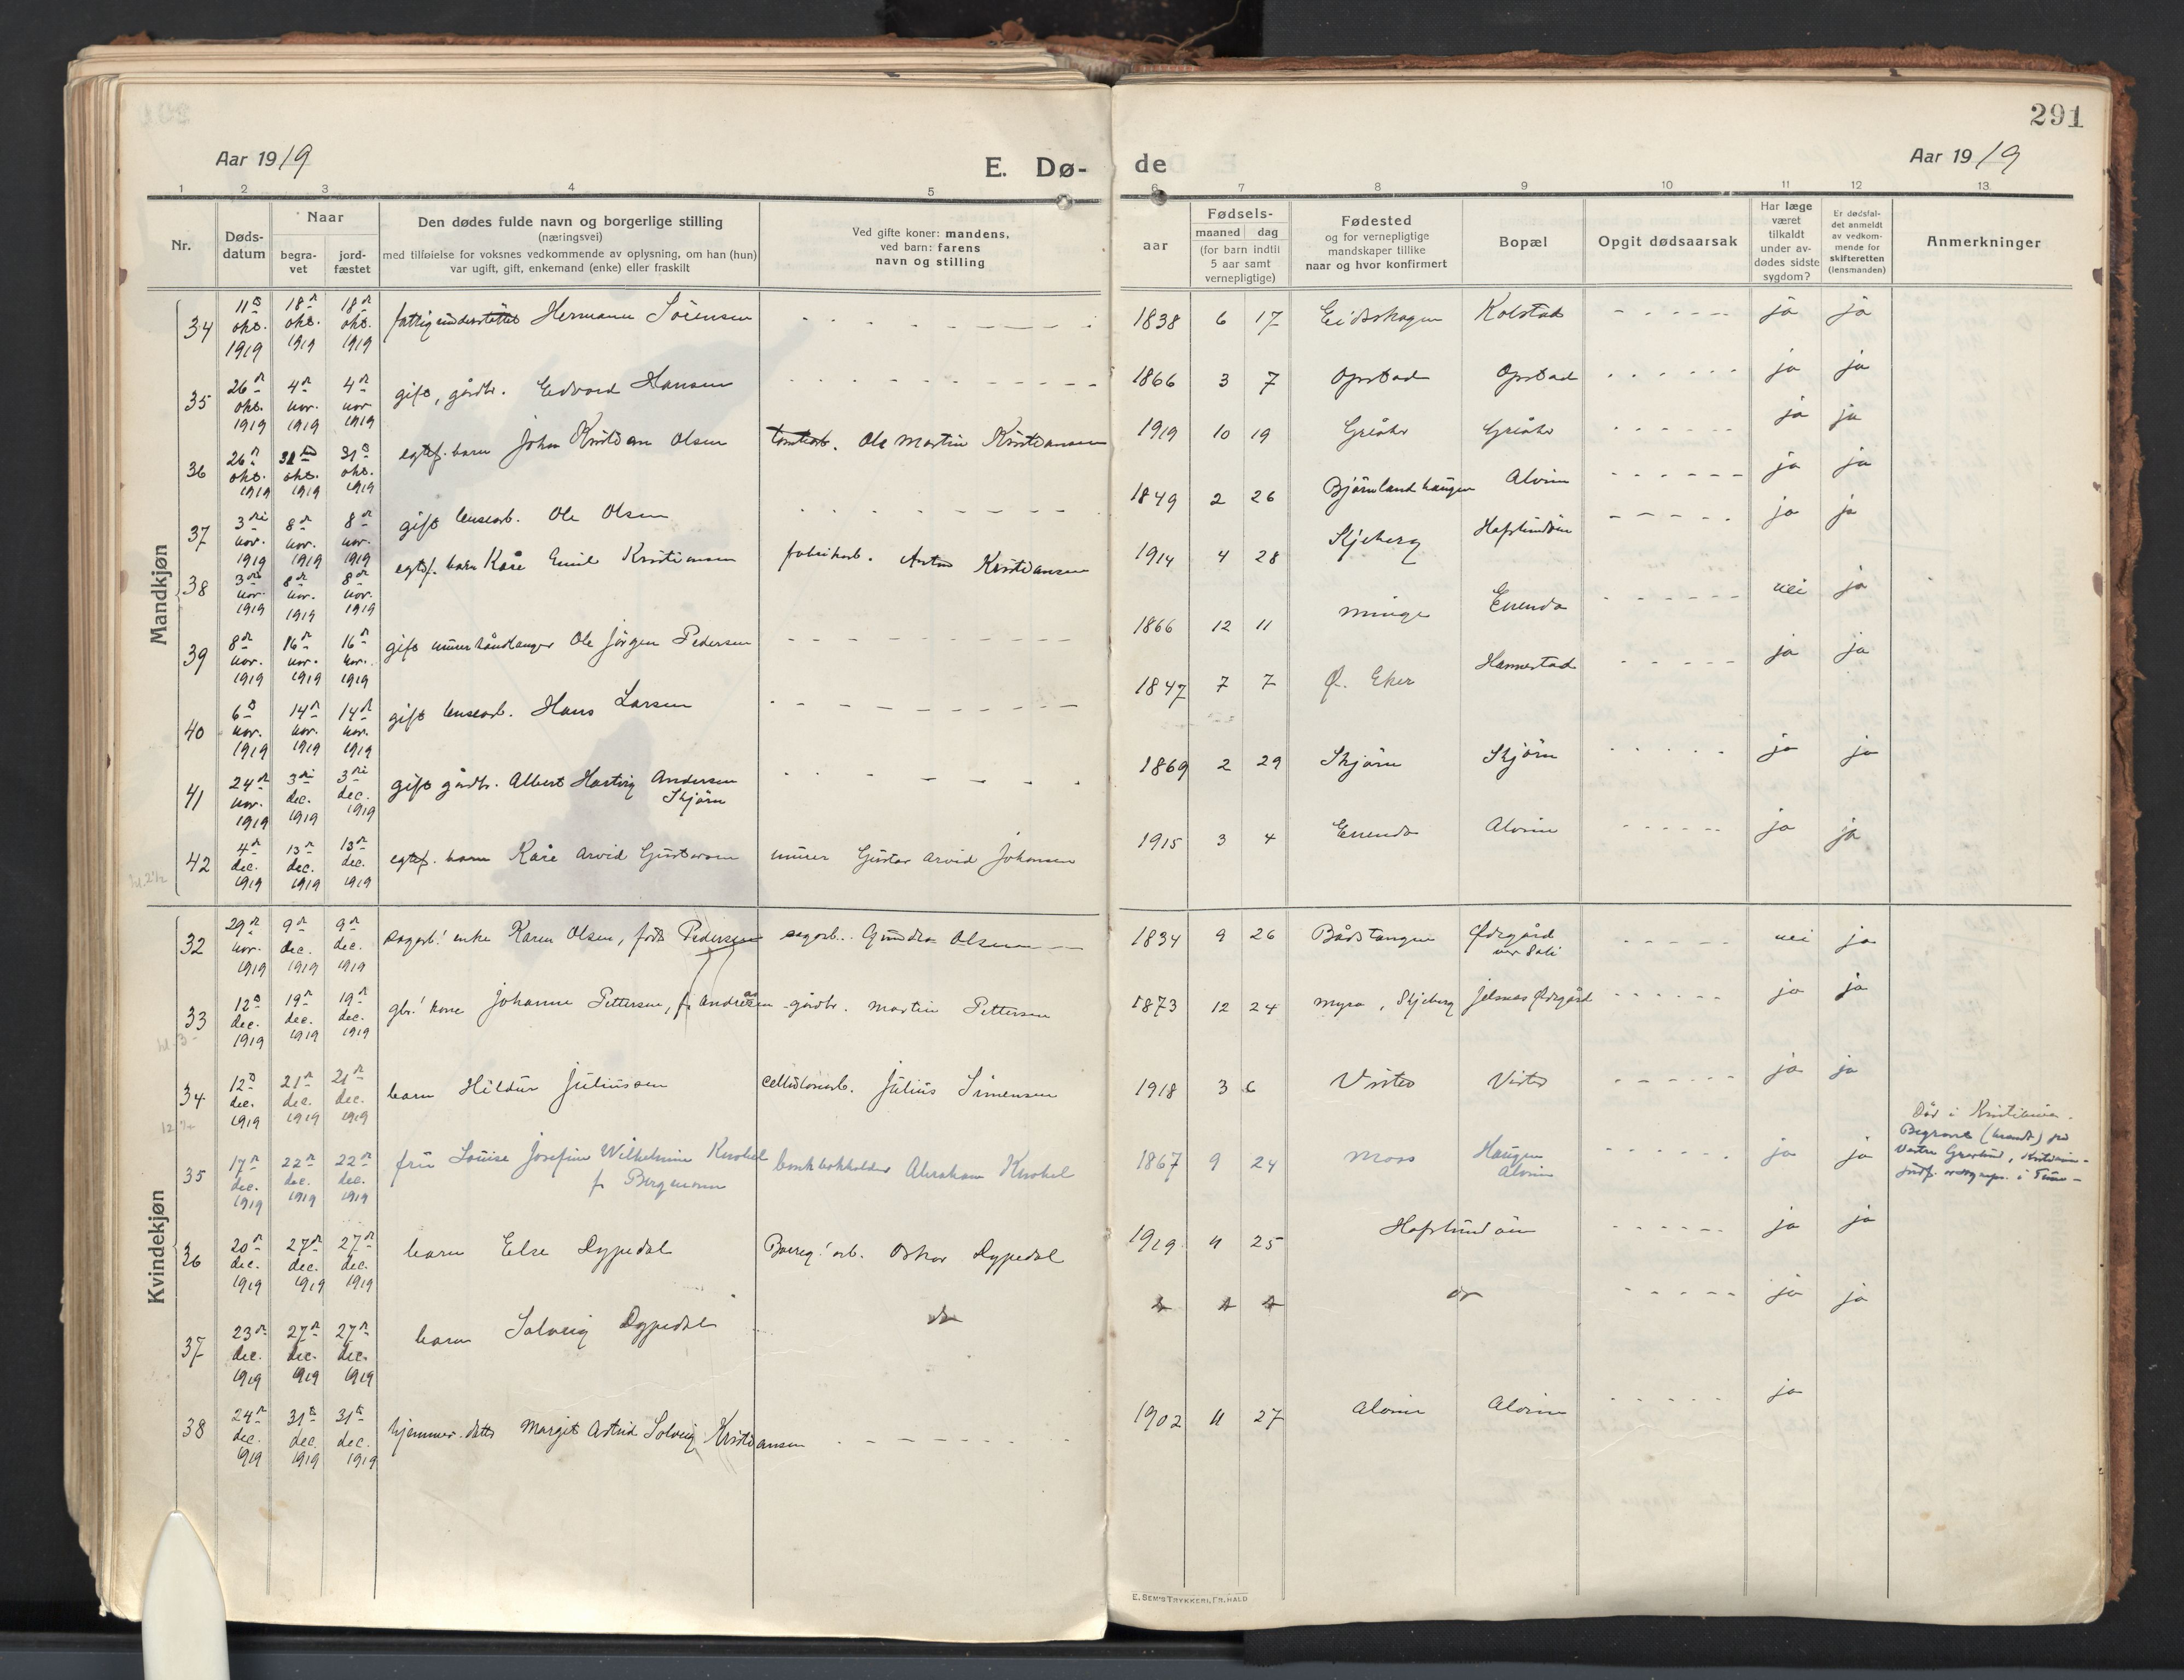 291
Aar 1919
E. Dø-
de
Aar 1919
1 2 3 4 5 6 7 8 9 10 11 12 13.
Nr.
Døds-
datum
Naar
begra-
vet
jord-
fæstet
Den dødes fulde navn og borgerlige stilling
(næringsvei)
med tilføielse for voksnes vedkommende av oplysning, om han (hun)
var ugift, gift, enkemand (enke) eller fraskilt
Ved gifte koner: mandens,
ved barn: farens
navn og stilling
aar
Fødsels-
maaned dag
(for barn indtil
5 aar samt
vernepligtige)
Fødested
og for vernepligtige
mandskaper tillike
naar og hvor konfirmert
Bopæl
Opgit dødsaarsak
Har læge
været
tilkaldt
under av-
dødes sidste
sygdom?
Er dødsfal-
det anmeldt
av vedkom-
mende for
skifteretten
(lensmanden)
Anmerkninger
Mandkjøn
34 11te okt. 1919 18de okt. 1919 18de okt. 1919 fattigunderstøttet Hermann Sörensen - - - 1838 6 17 Eidsskogen Kolstad - - - ja ja
35 26de okt. 1919 4de nov. 1919 4de nov. 1919 gift, gårdbr. Edvard Hansen - - - 1866 3 7 Opstad Opstad - - - ja ja
36 26de okt. 1919 31te okt. 1919 31te okt. 1919 egtef. barn Johan Kristian Olsen Ole Martin Kristiansen 1919 10 19 Greåker Greåker - - - ja ja
37 3die nov. 1919 8de nov. 1919 8de nov. 1919 gift lensearb. Ole Olsen - - - 1849 2 26 Björnlandhaugen Alvim - - - ja ja
38 3die nov. 1919 8de nov. 1919 8de nov. 1919 egtef. barn Kåre Emil Kristiansen fabrikarb. Anton Kristiansen 1914 4 28 Skjeberg Hafslundsöen - - - ja ja
39 8de nov. 1919 16de nov. 1919 16de nov. 1919 gift murerhåndlanger Ole Jörgen Pedersen - - - 1866 12 11 Minge Enenda - - - nei ja
40 6te nov. 1919 14de nov. 1919 14de nov. 1919 gift lensearb. Hans Larsen - - - 1847 7 7 Ø. Eker Hannestad - - - ja ja
41 24de nov. 1919 3die dec. 1919 3die dec. 1919 gift gårdbr. Albert Hartvig Andersen
Skjörn - - - 1869 2 29 Skjörn Skjörn - - - ja ja
42 4de dec. 1919 13de dec. 1919 13de dec. 1919 egtef. barn Kåre Arvid Gustavsen murer Gustav Arvid Johansen 1915 3 4 Enenda Alvim - - - ja ja
Kvindekjøn
32 29de nov. 1919 9de dec. 1919 9de dec. 1919 sagarb.' enke Karen Olsen, födt Pedersen sagarb. Olsen 1834 9 26 Bådstangen Ødegård - - - nei ja
33 12te dec. 1919 19de dec. 1919 19de dec. 1919 gbr.' kone Johanne Pettersen, f. Andreasen gårdbr. Martin Pettersen 1873 12 24 Myra, Skjeberg Jelsnes Ødegård - - - ja ja
34 12te dec. 1919 21de dec. 1919 21de dec. 1919 barn Hildur Juliussen cellulosearb. Julius Simensen 1918 3 6 Visted Visted - - - ja ja
35 17de dec. 1919 22de dec. 1919 22de dec. 1919 frue Louise Josefine Wilhelmine Knobel
f. Bergmann bankbokholder Abraham Knobel 1867 9 24 Moss Haugen
Alvim ja ja Död i Kristiania.
Begravet (brændt) på
Vestre Gravlund, Kristiania -
36 20de dec. 1919 27de dec. 1919 27de dec. 1919 barn Else Dypedal Borreg.' arb. Oskar Dypedal 1919 11 25 Hafslundsöen - - - ja ja
37 23de dec. 1919 27de dec. 1919 27de dec. 1919 barn Solveig Dypedal do do - - - ja ja
38 24de dec. 1919 31te dec. 1919 31te dec. 1919 hjemmev. datter Margit Astrid Solveig Kristiansen - - - 1902 11 27 Alvim Alvim - - - ja
E. SEM'S TRYKKERI, FR.HALD